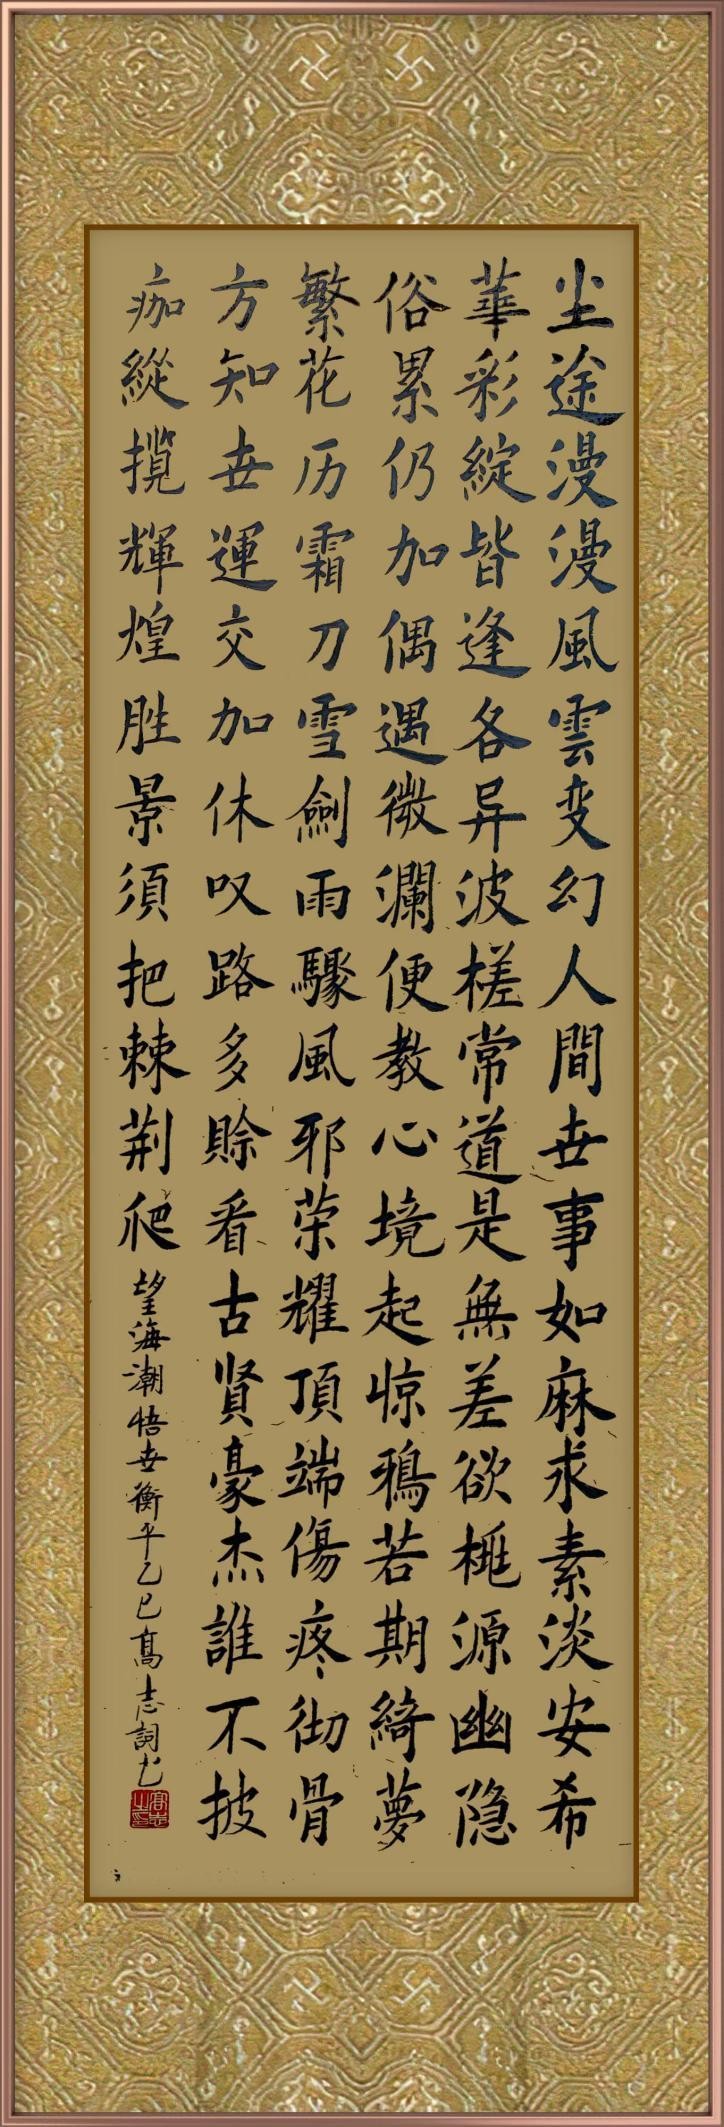 尘途漫漫風雲变幻人間世事如麻求素淡安希
華彩綻皆逢各异波槎常道是無差欲桃源幽隐
俗累仍加偶遇微瀾便教心境起惊鴉若期綺夢
繁花历霜刀雪劍雨驟風邪荣耀頂端傷疼彻骨
方知世運交加休叹路多賒看古贤豪杰誰不披
痂縱揽輝煌胜景須把棘荆爬
望海潮悟世衡平乙巳高志詞书